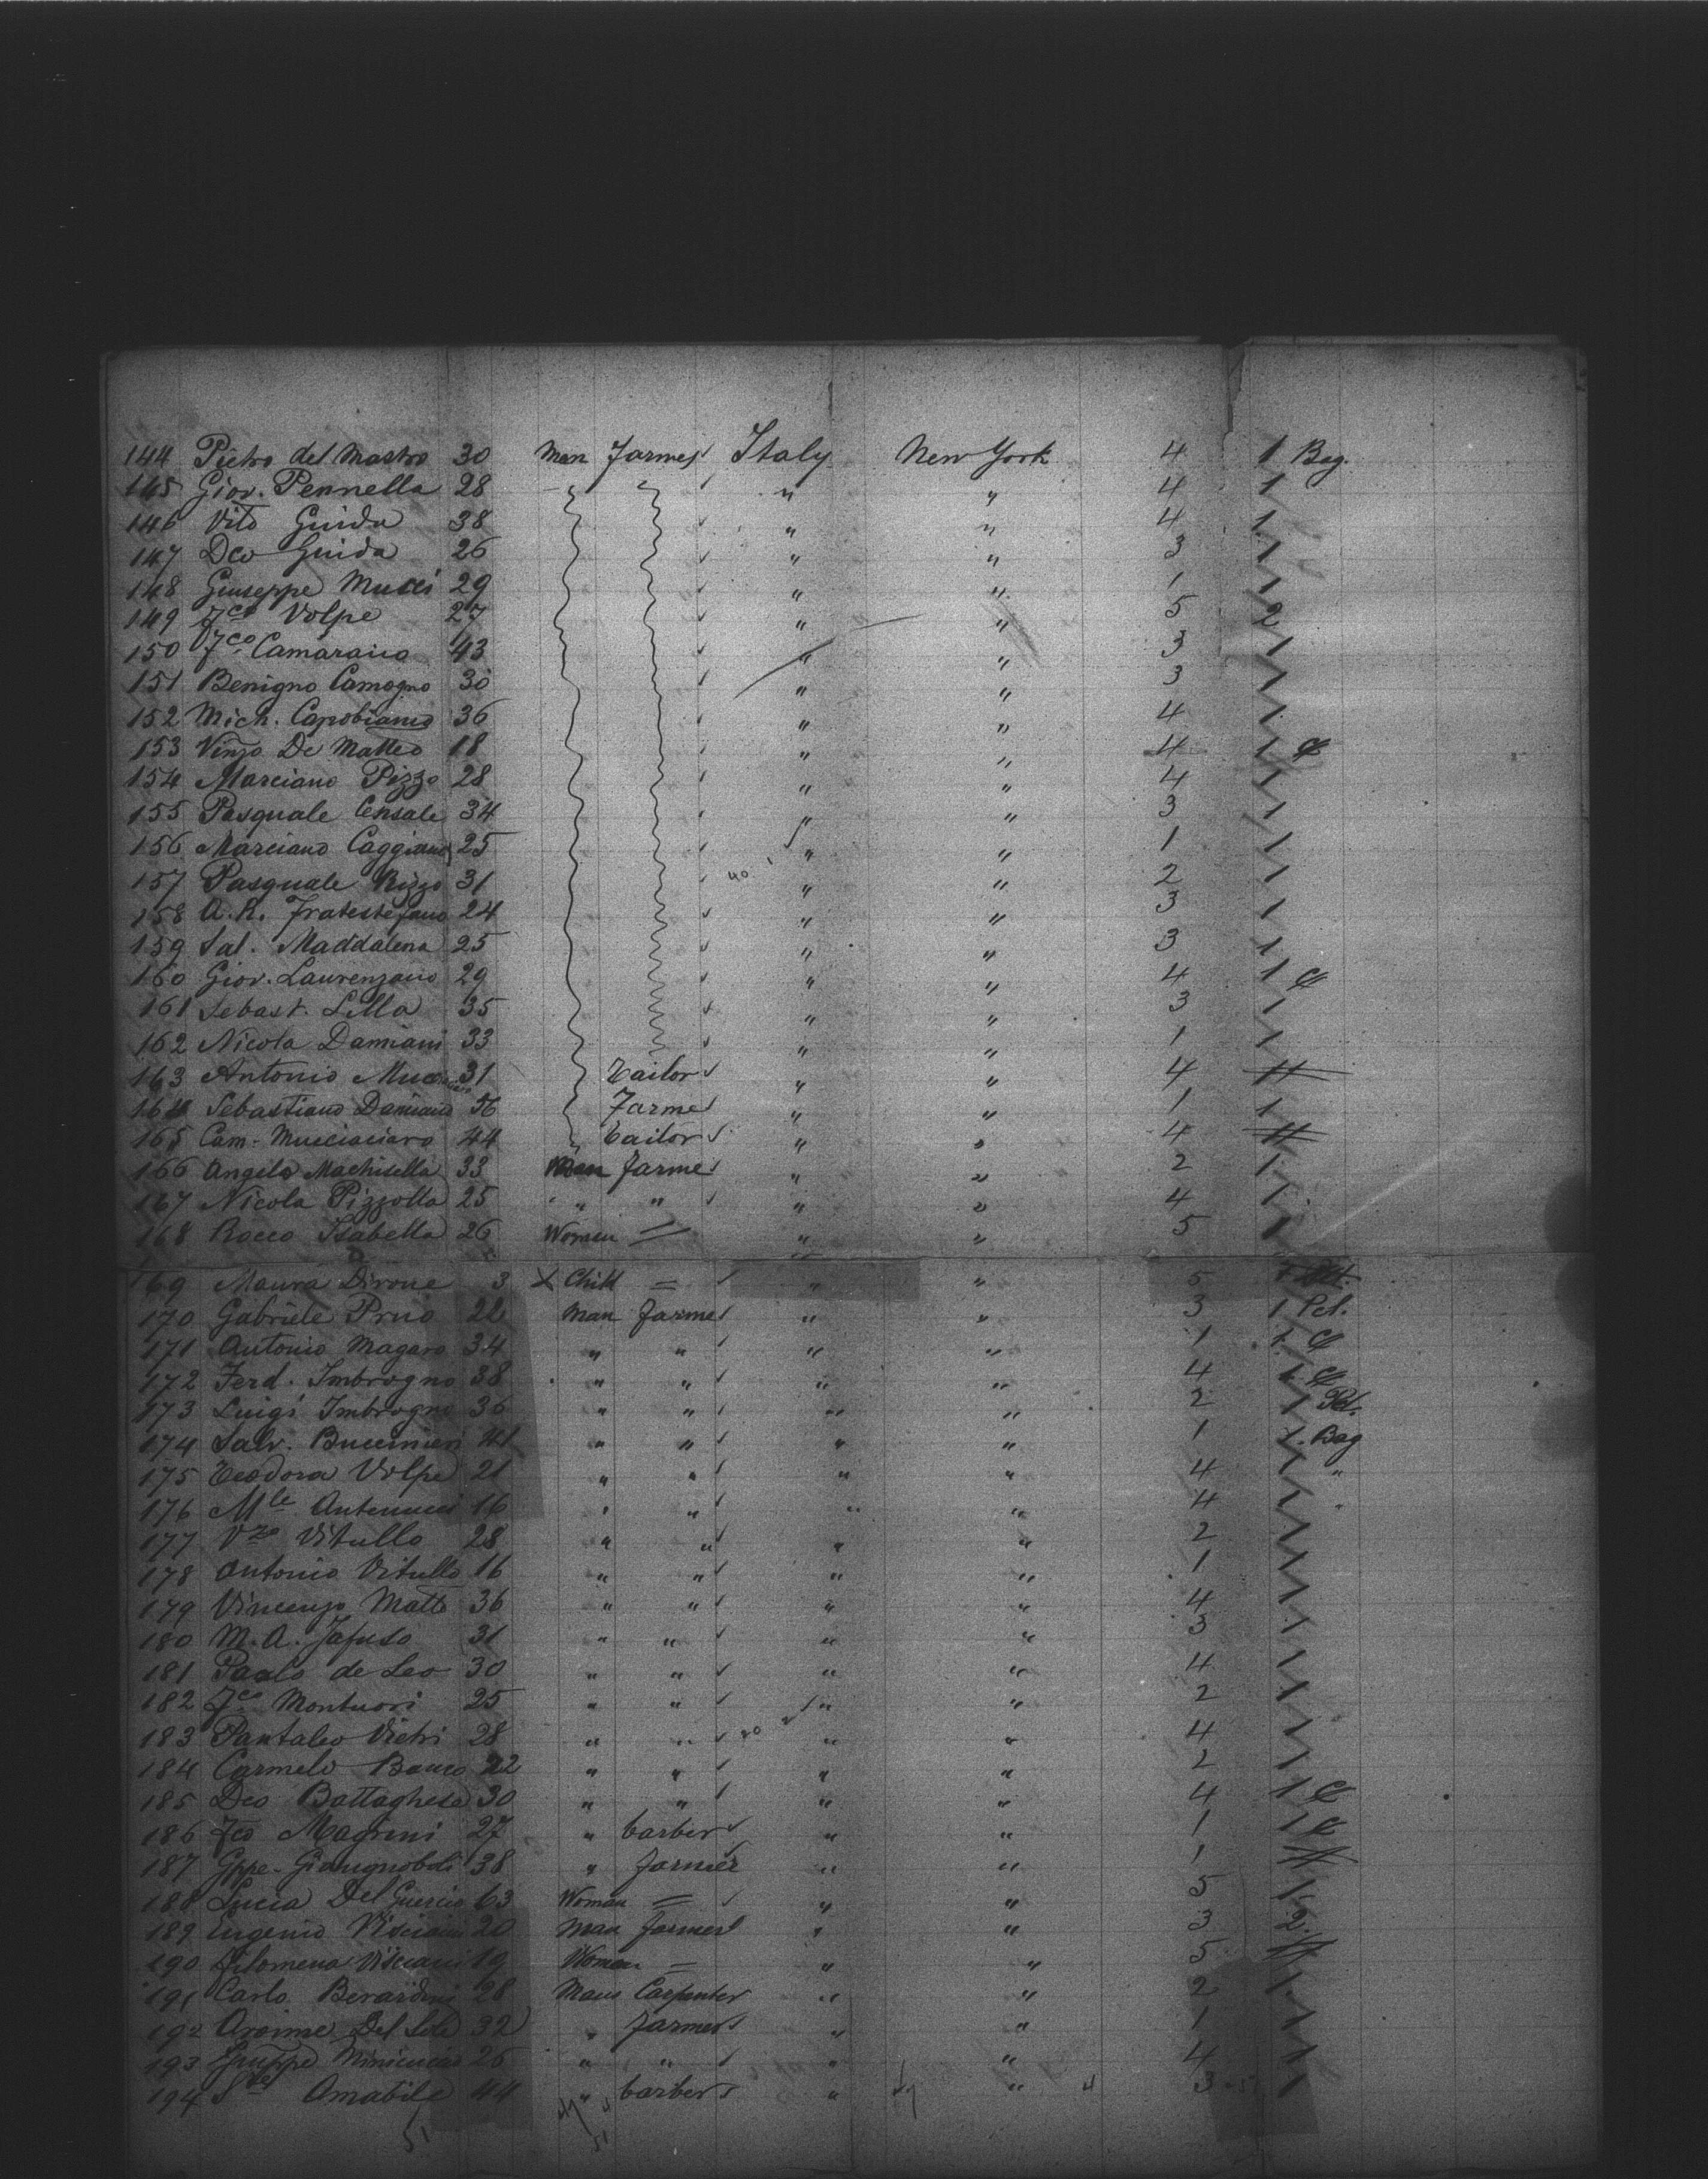 144 Pietro del Mastro 30 Man Farmer Italy New York 4 1 Bag.
145 Giov. Pennella 28 " " 4 1
146 Vito Guida 38 " " 4 1
147 Dco Guida 26 " " 3 1
148 Giuseppe Mucci 29 " " 1 1
149 Fco Volpe 27 " " 5 2
150 Fco Camaraño 43 " " 3 1
151 Benigno Camogno 30 " " 3 1
152 Mich. Capobianco 36 " " 4 1
153 Vinzo De Matteo 18 " " 4 1
154 Marciano Pizzo 28 " " 4 1
155 Pasquale Censale 34 " " 3 1
156 Marciano Caggiano 25 " " 1 1
157 Pasquale Rizzo 31 40 " " 2 1
158 A. R. Fratestefano 24 " " 3 1
159 Sal. Maddalena 25 " " 3 1
160 Giov. Laurenzano 29 " " 4 1
161 Sebast. Lilla 35 " " 3 1
162 Nicola Damiani 33 " " 1 1
163 Antonio 31 Tailor " " 4
164 Sebastiano Damiano 56 Farmer " " 1 1
165 Cam. Mucciaciaro 44 Tailor " " 4
166 Angelo Machisella 33 Man Farmer " " 2 1
167 Nicola Pizzolla 25 " " " " 4 1
168 Rocco Isabella 26 Women = " " 5 1
169 Maura Dirone 3 X Child = " " 5
170 Gabriele Prio 22 Man Farmer " " 3 1 Pct.
171 Antonio Magaro 34 " " " " 1 1
172 Ferd. Imbrogno 38 " " " " 4 1
173 Luigi Imbrogno 36 " " " " 2 1 Pct.
174 Salv. Buccinieri 41 " " " " 1 1. Bag
175 Teodora Volpe 21 " " " " 4 1 "
176 Mle Antenucci 16 " " " " 4 1 "
177 Vzo Vitullo 28 " " " " 2 1
178 Antonio Vitullo 16 " " " " 1 1
179 Vincenzo Matto 36 " " " " 4 1
180 M. A. Jafuso 31 " " " " 3 1
181 Paolo de Leo 30 " " " " 4 1
182 Fco Montuori 25 " " " " 2 1
183 Pantaleo Vietri 28 " " " " 4 1
184 Carmelo Banco 22 " " " " 2 1
185 Dco Battaghese 30 " " " " 4 1
186 Fco Magrini 27 " barber " " 1 1
187 Gppe. Giangnoboli 38 " farmer " " 1
188 Lucia Del Guercio 63 Woman = " " 5 1
189 Eugenio Visciani 20 Man farmer " " 3 2
190 Filomena Visciani 19 Woman = " " 5
191 Carlo Berardini 28 Man Carpenter " " 2 1
192 Del Sole 32 " farmer " " 1 1
193 Giuseppe Minicucci 26 " " " " 4 1
194 Amabile 44 " barber " " 3 1
51 51